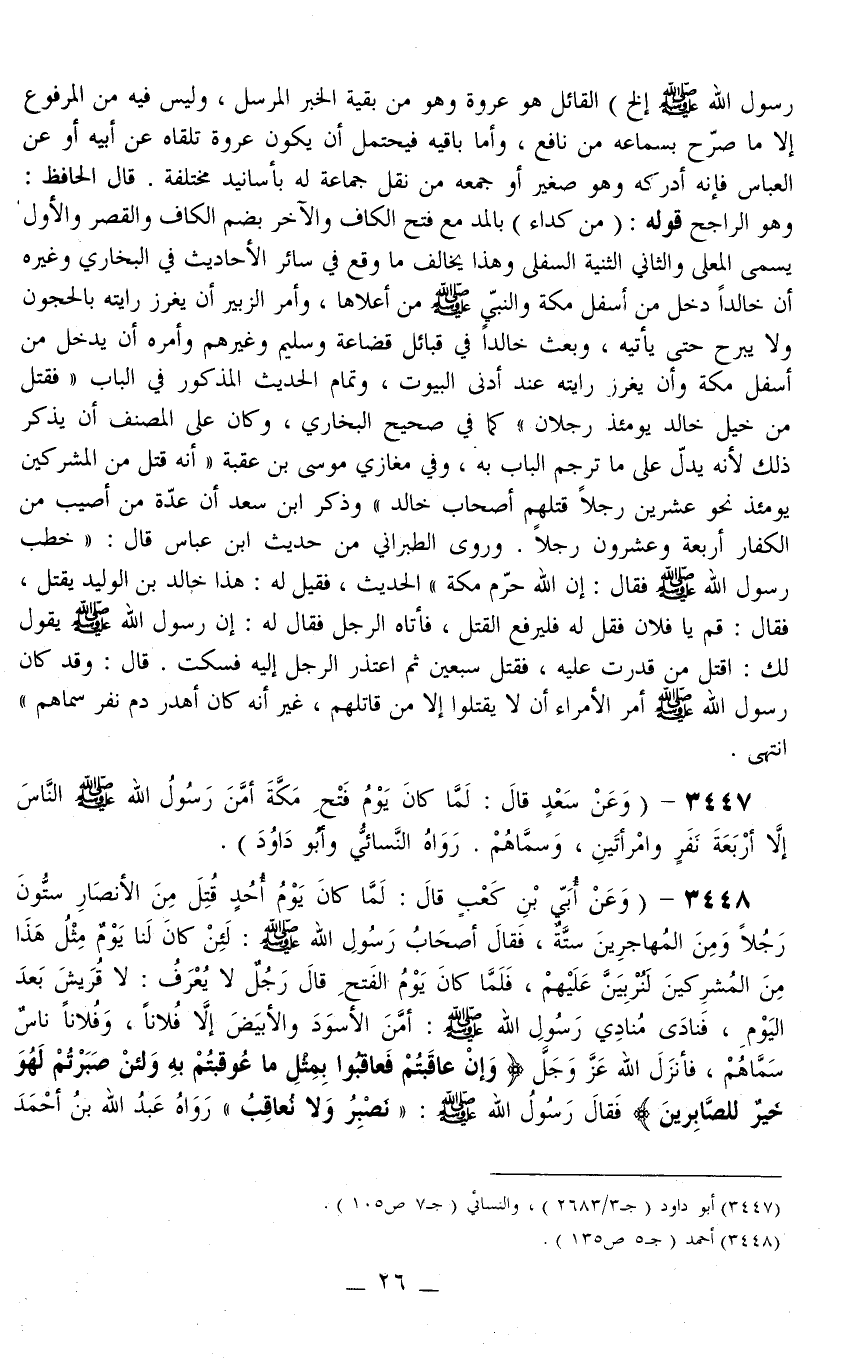 رسول الله ﷺ إلخ ) القائل هو عروة وهو من بقية الخبر المرسل ، وليس فيه من المرفوع
إلا ما صرّح بسماعه من نافع ، وأما باقيه فيحتمل أن يكون عروة تلقاه عن أبيه أو عن
العباس فإنه أدركه وهو صغير أو جمعه من نقل جماعة له بأسانيد مختلفة . قال الحافظ :
وهو الراجح قوله : ( من كداء ) بالمد مع فتح الكاف والآخر بضم الكاف والقصر والأول
يسمى المعلى والثاني الثنية السفلى وهذا يخالف ما وقع في سائر الأحاديث في البخاري وغيره
أن خالداً دخل من أسفل مكة والنبيّ ﷺ من أعلاها ، وأمر الزبير أن يغرز رايته بالحجون
ولا يبرح حتى يأتيه ، وبعث خالداً في قبائل قضاعة وسليم وغيرهم وأمره أن يدخل من
أسفل مكة وأن يغرز رايته عند أدنى البيوت ، وتمام الحديث المذكور في الباب « فقتل
من خيل خالد يومئذ رجلان » كما في صحيح البخاري ، وكان على المصنف أن يذكر
ذلك لأنه يدلّ على ما ترجم الباب به ، وفي مغازي موسى بن عقبة « أنه قتل من المشركين
يومئذ نحو عشرين رجلاً قتلهم أصحاب خالد » وذكر ابن سعد أن عدّة من أصيب من
الكفار أربعة وعشرون رجلاً . وروى الطبراني من حديث ابن عباس قال : « خطب
رسول الله ﷺ فقال : إن الله حرّم مكة » الحديث ، فقيل له : هذا خالد بن الوليد يقتل ،
فقال : قم يا فلان فقل له فليرفع القتل ، فأتاه الرجل فقال له : إن رسول الله ﷺ يقول
لك : اقتل من قدرت عليه ، فقتل سبعين ثم اعتذر الرجل إليه فسكت . قال : وقد كان
رسول الله ﷺ أمر الأمراء أن لا يقتلوا إلا من قاتلهم ، غير أنه كان أهدر دم نفر سماهم »
انتهى .
٣٤٤٧ - ( وَعَنْ سَعْدٍ قالَ : لَمَّا كانَ يَوْمُ فَتْحِ مَكَّةَ أمَّنَ رَسُولُ الله ﷺ النَّاسَ
إلَّا أرْبَعَةَ نَفَرٍ وامْرأتَينِ ، وَسماَّهُمْ . رَوَاهُ النَّسائيُّ وأبُو دَاوُدَ ) .
٣٤٤٨ - ( وَعَنْ أُبَيّ بْنِ كَعْبٍ قالَ : لَمَّا كانَ يَوْمُ أُحُدٍ قُتِلَ مِنَ الأنصَارِ ستُّونَ
رَجُلاً وَمِنَ المُهاجرِينَ ستَّةٌ ، فَقالَ أصحَابُ رَسُولِ الله ﷺ : لَئِنْ كانَ لَنا يَوْمٌ مِثْلُ هَذَا
مِنَ المُشرِكينَ لَنُرْبَينَّ عَلَيْهِمْ ، فَلَمَّا كانَ يَوْمُ الفَتحِ قالَ رَجُلٌ لا يُعْرَفُ : لا قُرَيشَ بَعدَ
اليَومِ ، فَنادَى مُنادِي رَسُولِ الله ﷺ : أمَّنَ الأسوَدَ والأبيَضَ إلَّا فُلاناً ، وَفُلاناً ناسٌ
سَمَّاهُمْ ، فأنزَلَ الله عَزَّ وَجَلَّ ﴿ وَإنْ عاقَبتُمْ فَعاقبُوا بِمِثْلِ ما عُوقبتُمْ بهِ وَلَئنْ صَبَرْتُمْ لَهُوَ
خَيرٌ للصَّابِرينَ ﴾ فَقالَ رَسُولُ الله ﷺ : « نَصْبِرُ وَلا نُعاقِبُ » رَوَاهُ عَبدُ الله بنُ أحْمَدَ
(٣٤٤٧) أبو داود ( جـ٢٦٨٣/٣ ) ، والنسائي ( جـ٧ ص١٠٥ ) .
(٣٤٤٨) أحمد ( جـ٥ ص١٣٥ ) .
_ ٢٦ _